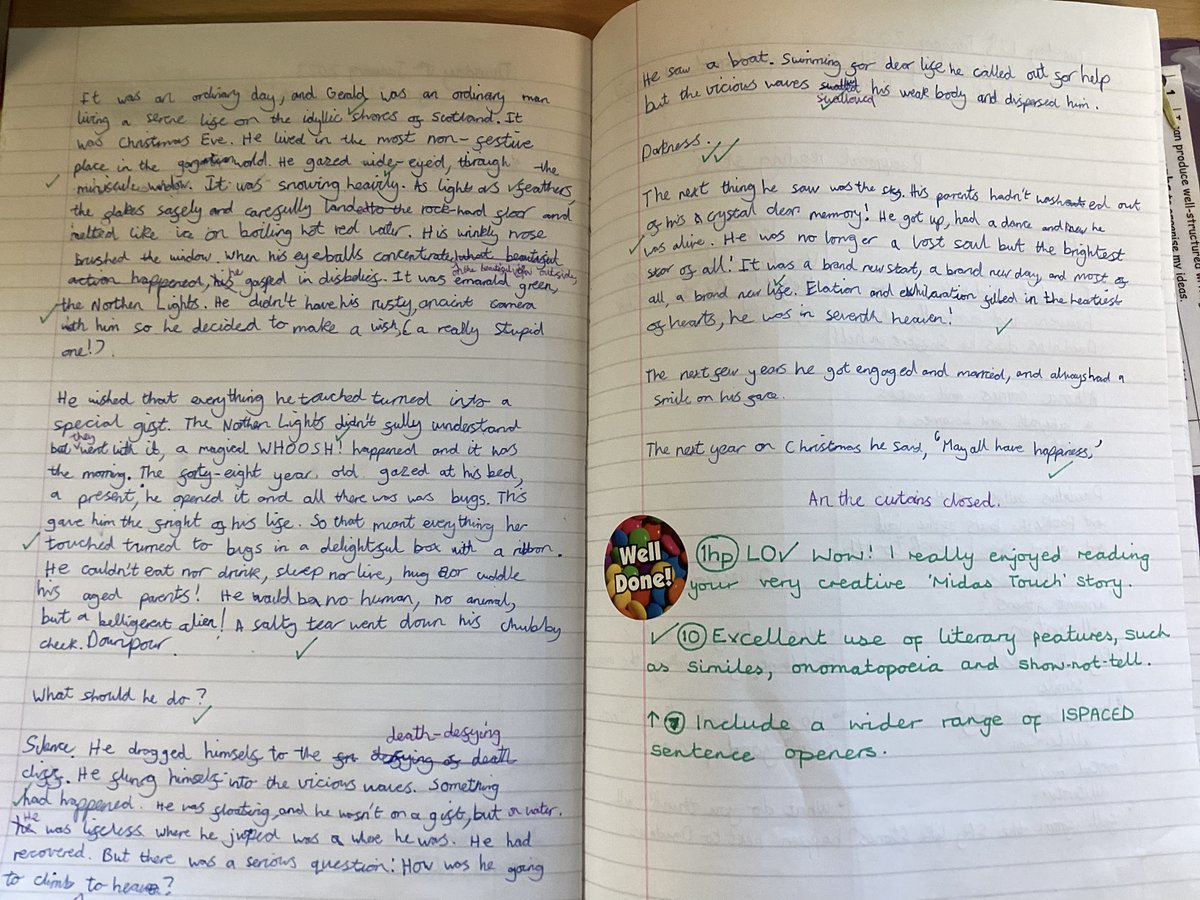 It was an ordinary day, and Gerald was an ordinary man
living a serene life on the idyllic shores of Scotland. It
was Christmas Eve. He lived in the most non-festive
place in the world. He gazed wide-eyed, through the
minuscule window. It was snowing heavily. As light as feathers,
the flakes safely and carefully landed to the rock-hard floor and
melted like ice on boiling hot red water. His winkly nose
brushed the window. When his eyeballs concentrate, what beautiful
on the beautiful view outside,
action happened, his he gasped in disbelief. It was emarald green,
the Nothen Lights. He didn't have his rusty, anciant camera
with him so he decided to make a wish, (a really stupid
one!).
He wished that everything he touched turned into a
special gift. The Nothen Lights didn't fully understand
but they went with it, a magical WHOOSH! happened and it was
the morning. The forty-eight year old gazed at his bed,
a present, he opened it and all there was was bugs. This
gave him the fright of his life. So that meant everything her
touched turned to bugs in a delightful box with a ribbon.
He couldn't eat nor drink, sleep nor live, hug or cuddle
his aged parents! He would be no human, no animal,
but a belligerent alien! A salty tear went down his chubby
cheek. Downpour.
What should he do?
death-defying
Silence. He dragged himself to the defying of death
cliffs. He flung himself into the vicious waves. Something
had happened. He was floating, and he wasn't on a gift, but on water.
He was lifeless where he jumped was a where he was. He had
recovered. But there was a serious question: How was he going
to climb to heaven?
He saw a boat. Swimming for dear life he called out for help
but the vicious waves swallowed his weak body and dispersed him.
Darkness.
The next thing he saw was the sky. His parents hadn't washed out
of his crystal clear memory! He got up, had a dance and knew he
was alive. He was no longer a lost soul but the brightest
star of all! It was a brand new start, a brand new day, and most of
all, a brand new life. Elation and exhilaration filled in the heartiest
of hearts, he was in seventh heaven!
The next few years he got engaged and married, and always had a
smile on his face.
The next year on Christmas he said, 'May all have happiness,'
An the curtains closed.
Well
Done!
1hp LO✓ Wow! I really enjoyed reading
your very creative 'Midas Touch' story.
✓ 10 Excellent use of literary features, such
as similes, onomatopoeia and show-not-tell.
↑ 7 Include a wider range of ISPACED
sentence openers.
can produce well-structured
to organise my ideas.